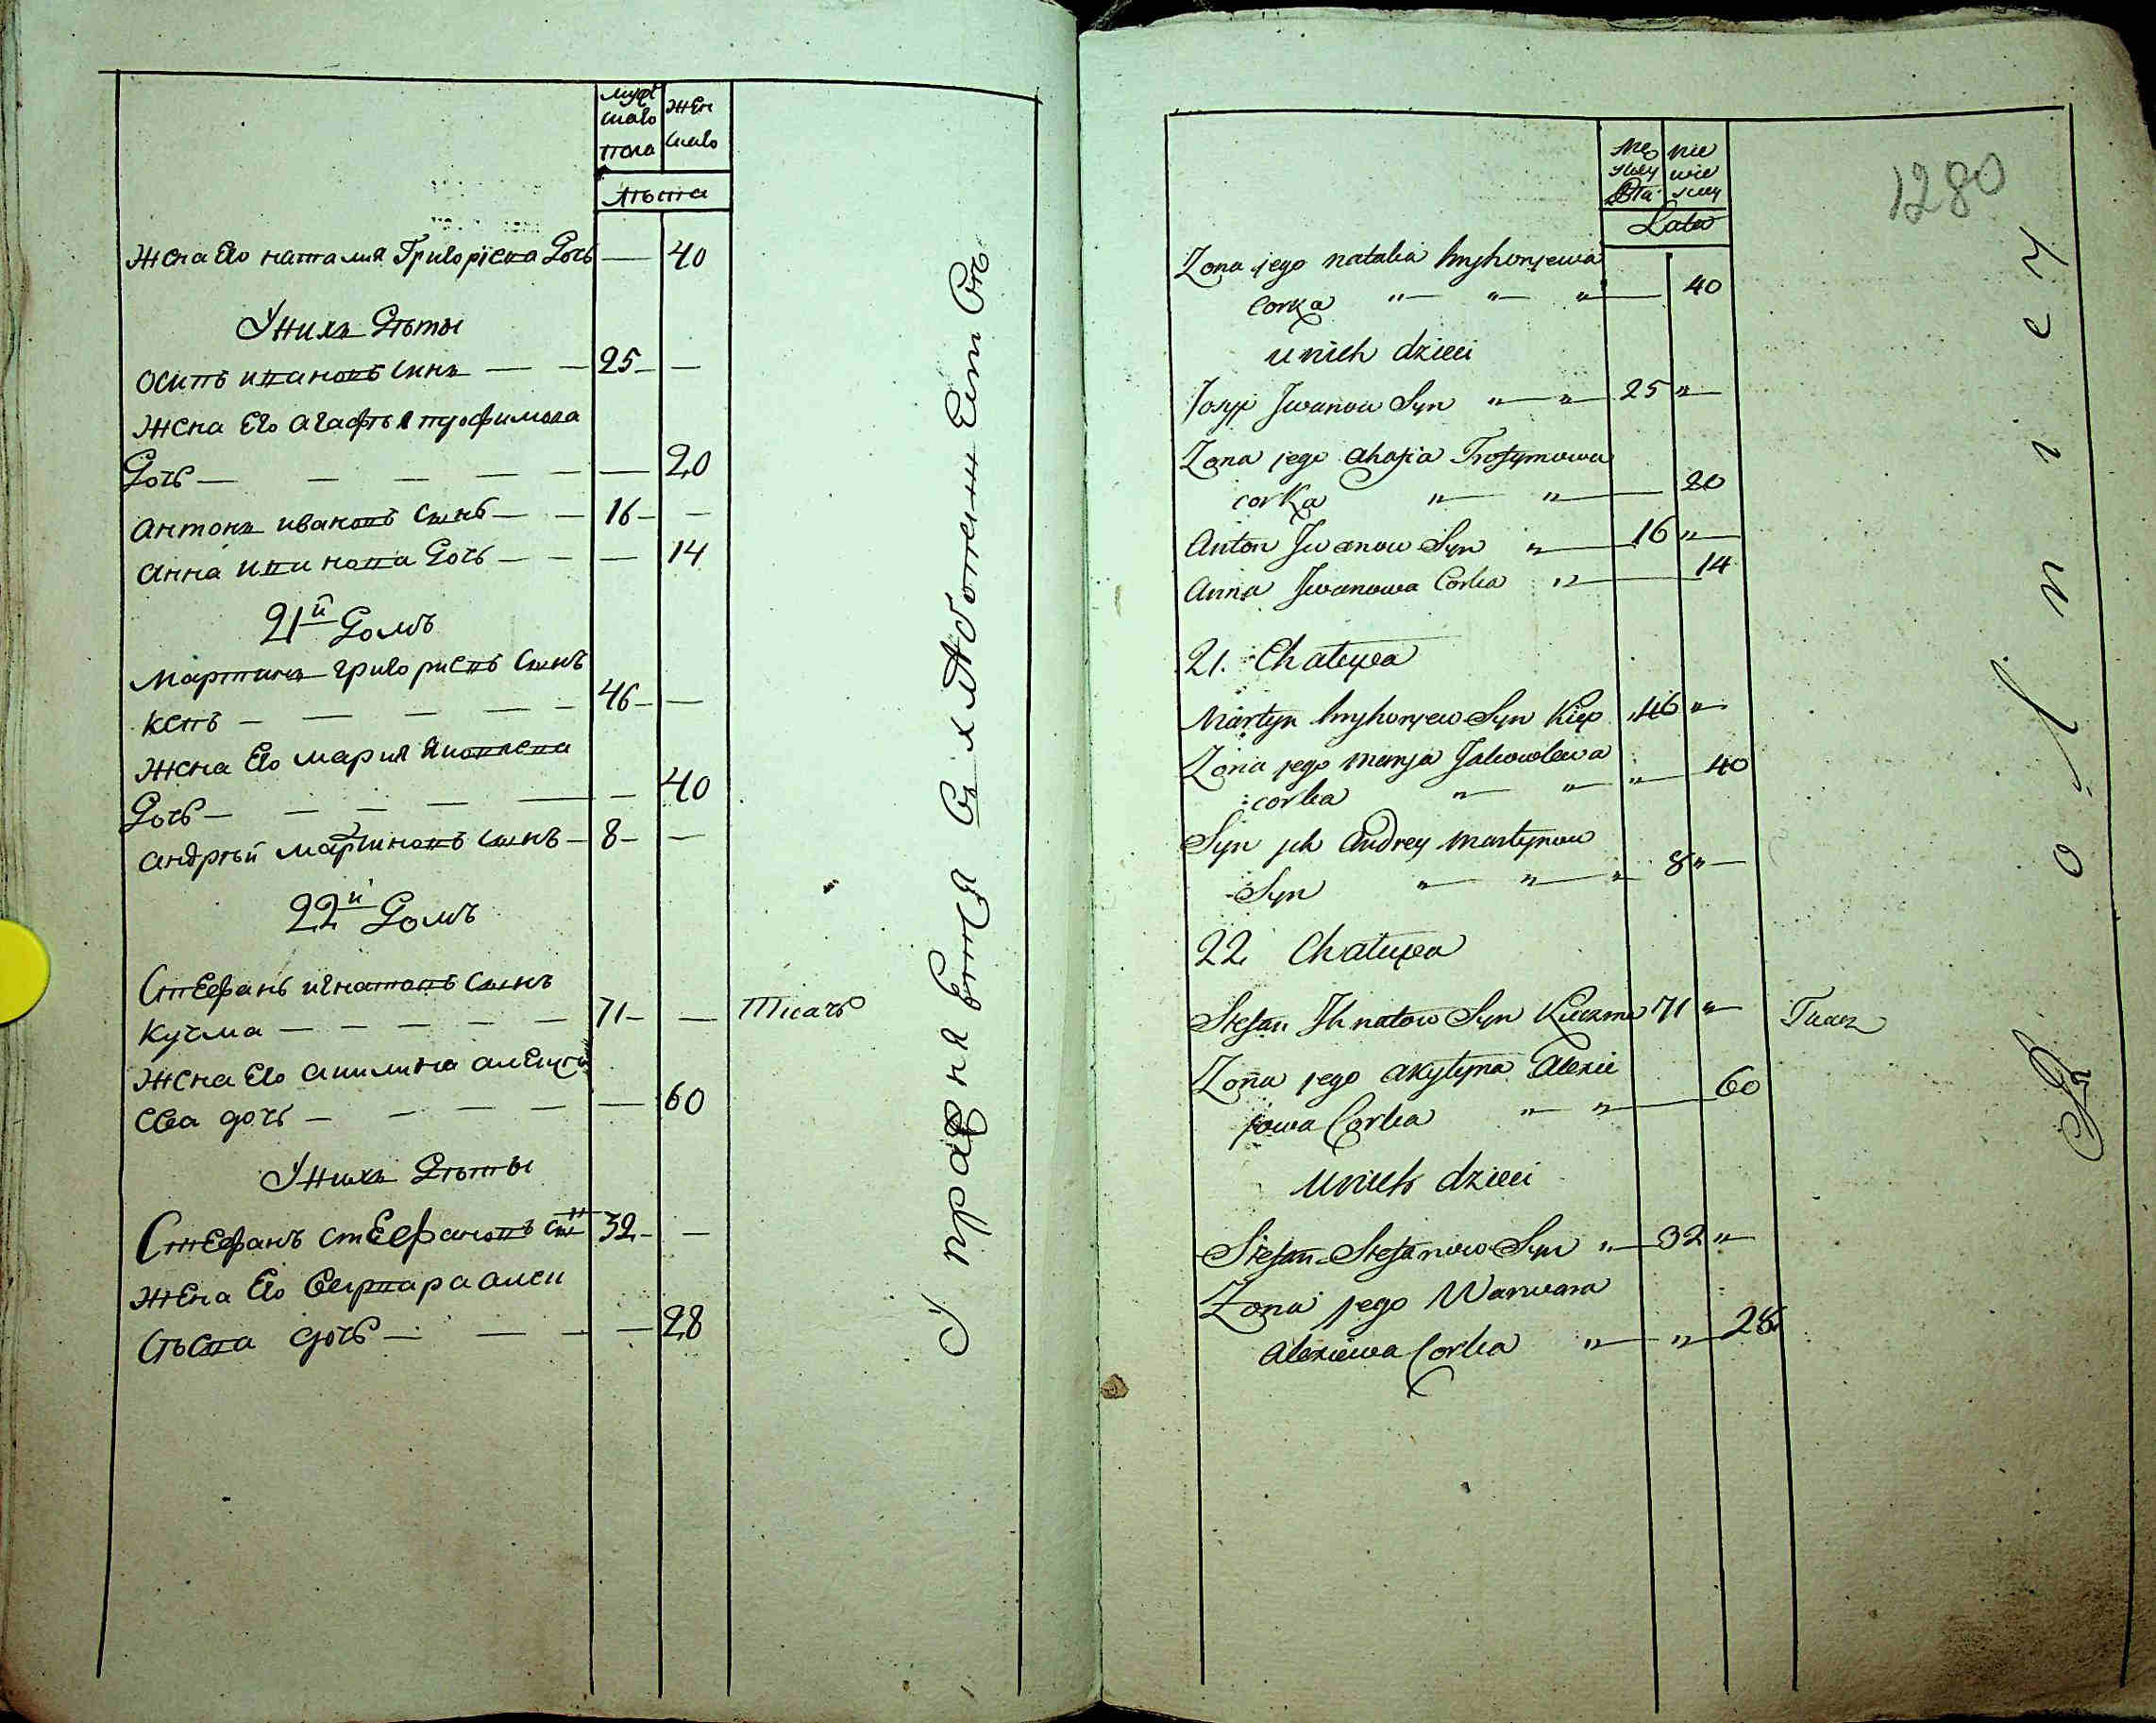 мужскаво пола
женскаво
лѣта
Жена Его наталия Григориева Дочь — 40
У нихъ Дѣты
осипъ ивановъ синъ — — 25 — —
Жена Его агафья трофимова
Дочь — — — — — — 20
антонъ ивановъ Сынъ — — 16 — —
анна иванова Дочь — — — 14
21й Домъ
мартинъ григориевъ Сынъ
кепъ — — — — — 46 — —
Жена Его мариа Яковлева
Дочь — — — — — — 40
андрѣй мартиновъ Сынъ — 8 — —
22й Домъ
Стефанъ игнатовъ Сынъ
Кучма — — — — — 71 — — Ткачъ
Жена Его акилина алексѣ
ева дочь — — — — — 60
У нихъ Дѣты
Стефанъ стефановъ сынъ 32 — —
Жена Его варвара алек
сѣева дочь — — — — 28
Упражняется въ хлѣбопашествѣ
1280
Męskey Płci
niewieskey
Lata
Zona jego natalia hryhoryewa
corka " — " — " — 40
u nich dzieci
Josyp Iwanow Syn " — " 25 " —
Zona jego ahafia Trofymowa
corka " — " — 20
Anton Iwanow Syn " — 16 " —
Anna Iwanowa Corka " — 14
21. Chatupa
Martyn hryhoryew Syn Kiep 46 " —
Zona jego marya Jakowlewa
corka " — " — " — 40
Syn ich Andrey martynow
Syn " — " — " 8 " —
22 Chatupa
Stefan Ihnatow Syn Kuczma 71 " — Tkacz
Zona jego akylyna Alexie
jowa Corka " — " — 60
U nich dzieci
Stefan Stefanow Syn " — 32 " —
Zona jego Warwara
alexiewa Corka " — " — 28
Rolniey